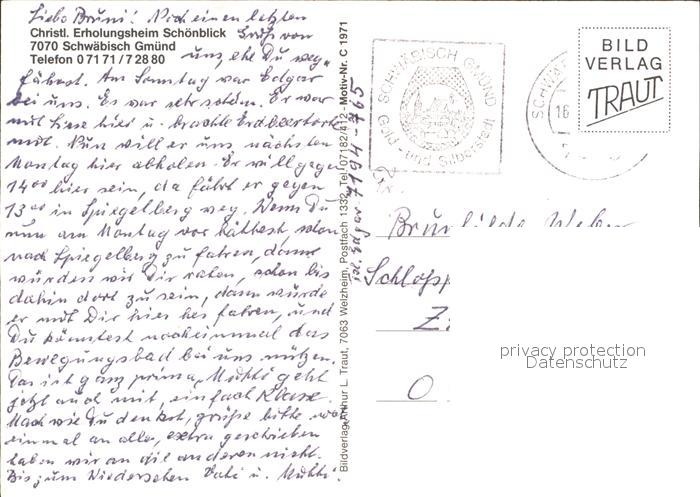 Liebe Bruni! Noch einen letzten
Christl. Erholungsheim Schönblick
7070 Schwäbisch Gmünd
Telefon 0 71 71 / 7 28 80
Gruß von
uns, ehe Du weg-
fährst. Am Sonntag war Edgar
bei uns. Es war sehr schön. Er war
mit Liese hier u. brachte Erdbeertorte
mit. Nun will er uns nächsten
Montag hier abholen. Er will gegen
14⁰⁰ hier sein, da fährt er gegen
13⁰⁰ in Spiegelberg weg. Wenn Du
nun am Montag vor hättest, schon
nach Spiegelberg zu fahren, dann
würden wir Dir raten, schon bis
dahin dort zu sein, dann würde
er mit Dir hier her fahren, und
Du könntest noch einmal das
Bewegungsbad bei uns nützen.
Das ist ganz prima, Mutti geht
jetzt auch mit, einfach Klasse.
Mach wie Du denkst, grüße bitte noch
einmal an alle, extra geschrieben
haben wir an die anderen nicht.
Bis zum Wiedersehen Vati u. Mutti.
Bildverlag Arthur L. Traut, 7063 Welzheim, Postfach 1332, Tel. 07182/412 - Motiv-Nr. C 1971
Edgar 7194-765
SCHWÄBISCH GMÜND
Gold- und Silberstadt
SCHWÄ
16.
BILD
VERLAG
TRAUT
Weber
Schloß
Z
O
privacy protection
Datenschutz